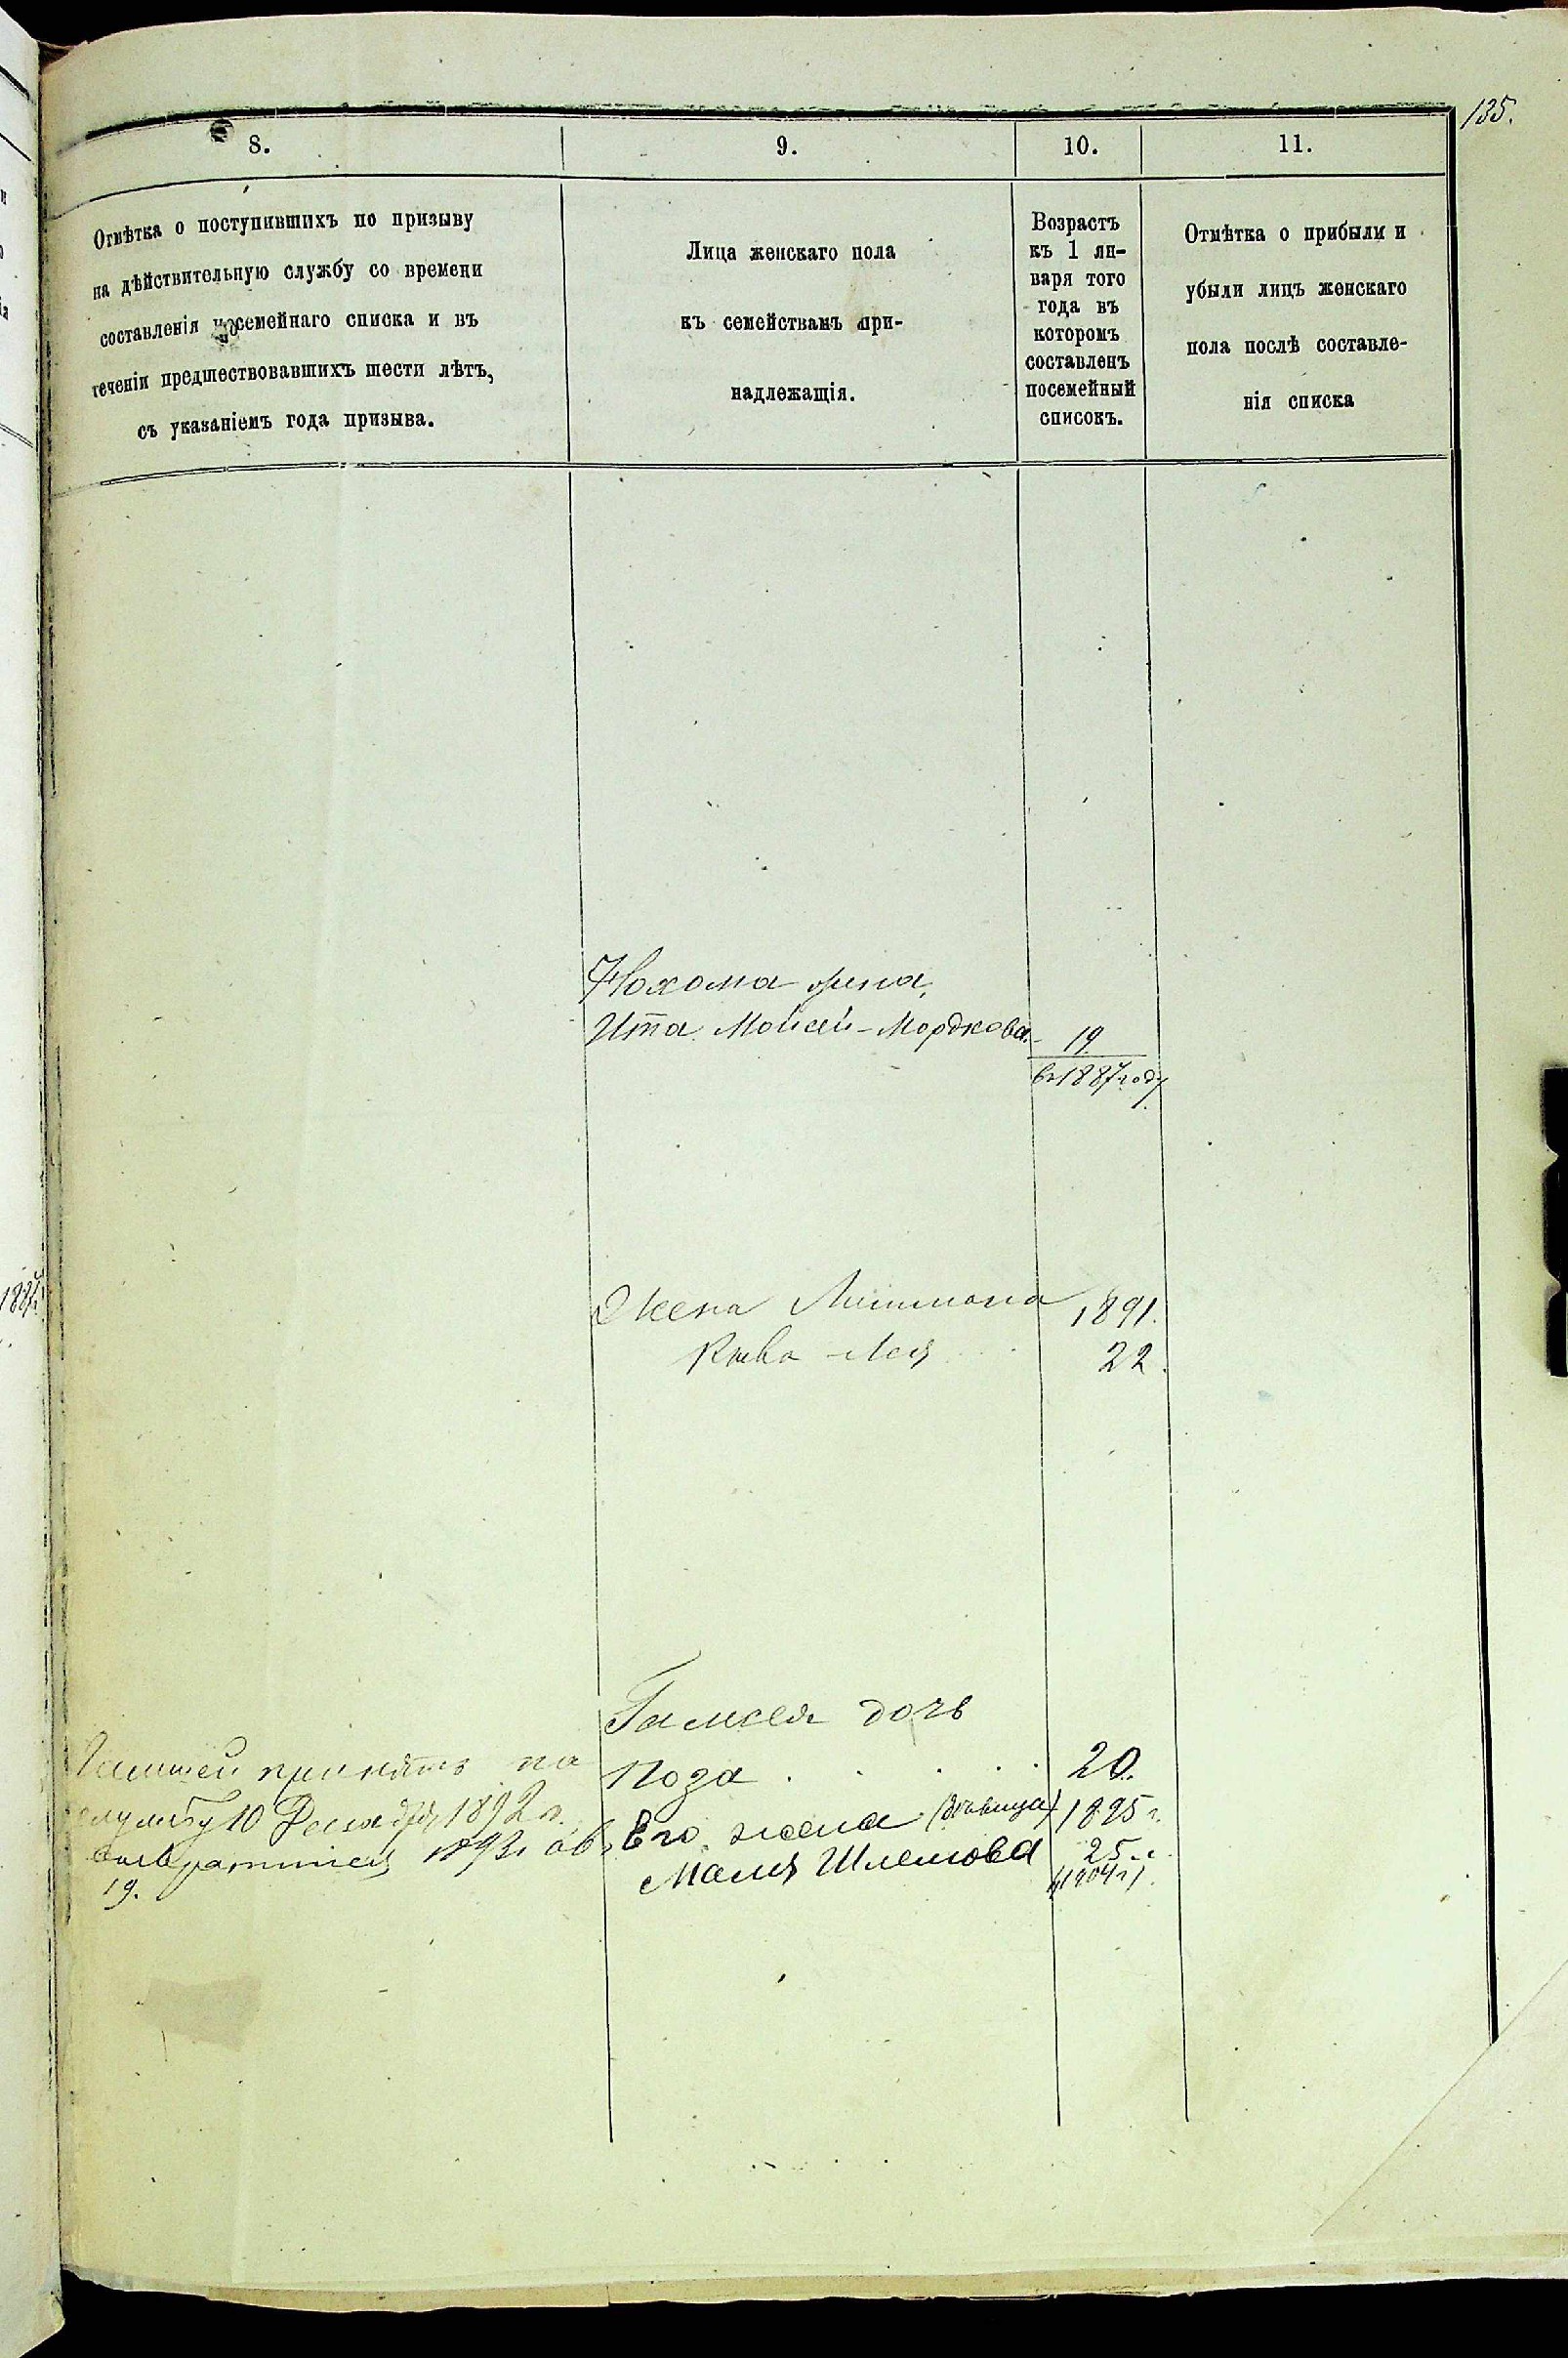 135.
8.
9.
10.
11.
Отмѣтка о поступившихъ по призыву
на дѣйствительную службу со времени
составленія посемейнаго списка и въ
теченіи предшествовавшихъ шести лѣтъ,
съ указаніемъ года призыва.
Лица женскаго пола
къ семействамъ при-
надлежащія.
Возрастъ
къ 1 ян-
варя того
года въ
которомъ
составленъ
посемейный
списокъ.
Отмѣтка о прибыли и
убыли лицъ женскаго
пола послѣ составле-
нія списка
Нохома жена,
Ита Мойсей-Мордкова 19
въ 1887 году
Жена Липмана 1891.
Рива-Лея 22.
дочь
20.
принятъ на
службу 10 Декабря 1892 г.
возвратился 1893 г.
19.
Его жена (девица) 1895 г.
Малия Шлемова 25
(1904 г.)